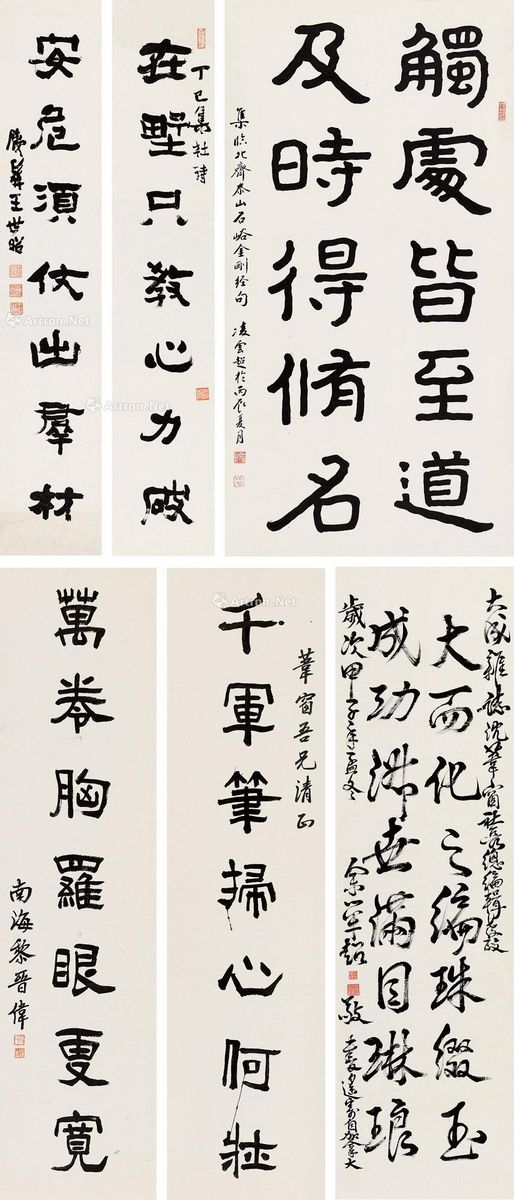 觸處皆至道
及時得脩名
集臨北齊泰山石峪金剛经句 凌雲超於丙辰夏月
丁巳集杜诗
在野只教心力破
安危須仗出羣材
勝彝王世昭
大成雜誌沈葦窗社長總編輯
大而化之編珠綴玉
成功沸世滿目琳琅
歲次甲子年孟冬
葦窗吾兄清正
千軍筆掃心何壯
萬卷胸羅眼更寬
南海黎晉偉
Artron.Net
Artron.Net
Artron.Net